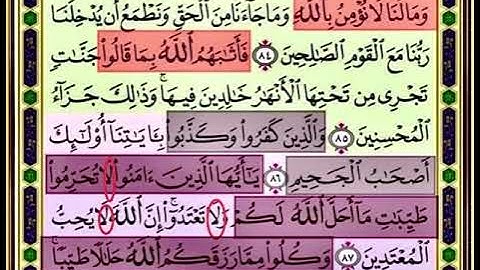 وَمَالَنَا لَا نُؤْمِنُ بِٱللَّهِ وَمَا جَآءَنَا مِنَ ٱلْحَقِّ وَنَطْمَعُ أَن يُدْخِلَنَا
رَبُّنَا مَعَ ٱلْقَوْمِ ٱلصَّٰلِحِينَ ٨٤ فَأَثَٰبَهُمُ ٱللَّهُ بِمَا قَالُوا۟ جَنَّٰتٍ
تَجْرِى مِن تَحْتِهَا ٱلْأَنْهَٰرُ خَٰلِدِينَ فِيهَا ۚ وَذَٰلِكَ جَزَآءُ
ٱلْمُحْسِنِينَ ٨٥ وَٱلَّذِينَ كَفَرُوا۟ وَكَذَّبُوا۟ بِـَٔايَٰتِنَآ أُو۟لَٰٓئِكَ
أَصْحَٰبُ ٱلْجَحِيمِ ٨٦ يَٰٓأَيُّهَا ٱلَّذِينَ ءَامَنُوا۟ لَا تُحَرِّمُوا۟
طَيِّبَٰتِ مَآ أَحَلَّ ٱللَّهُ لَكُمْ وَلَا تَعْتَدُوٓا۟ ۚ إِنَّ ٱللَّهَ لَا يُحِبُّ
ٱلْمُعْتَدِينَ ٨٧ وَكُلُوا۟ مِمَّا رَزَقَكُمُ ٱللَّهُ حَلَٰلًا طَيِّبًا ۚ